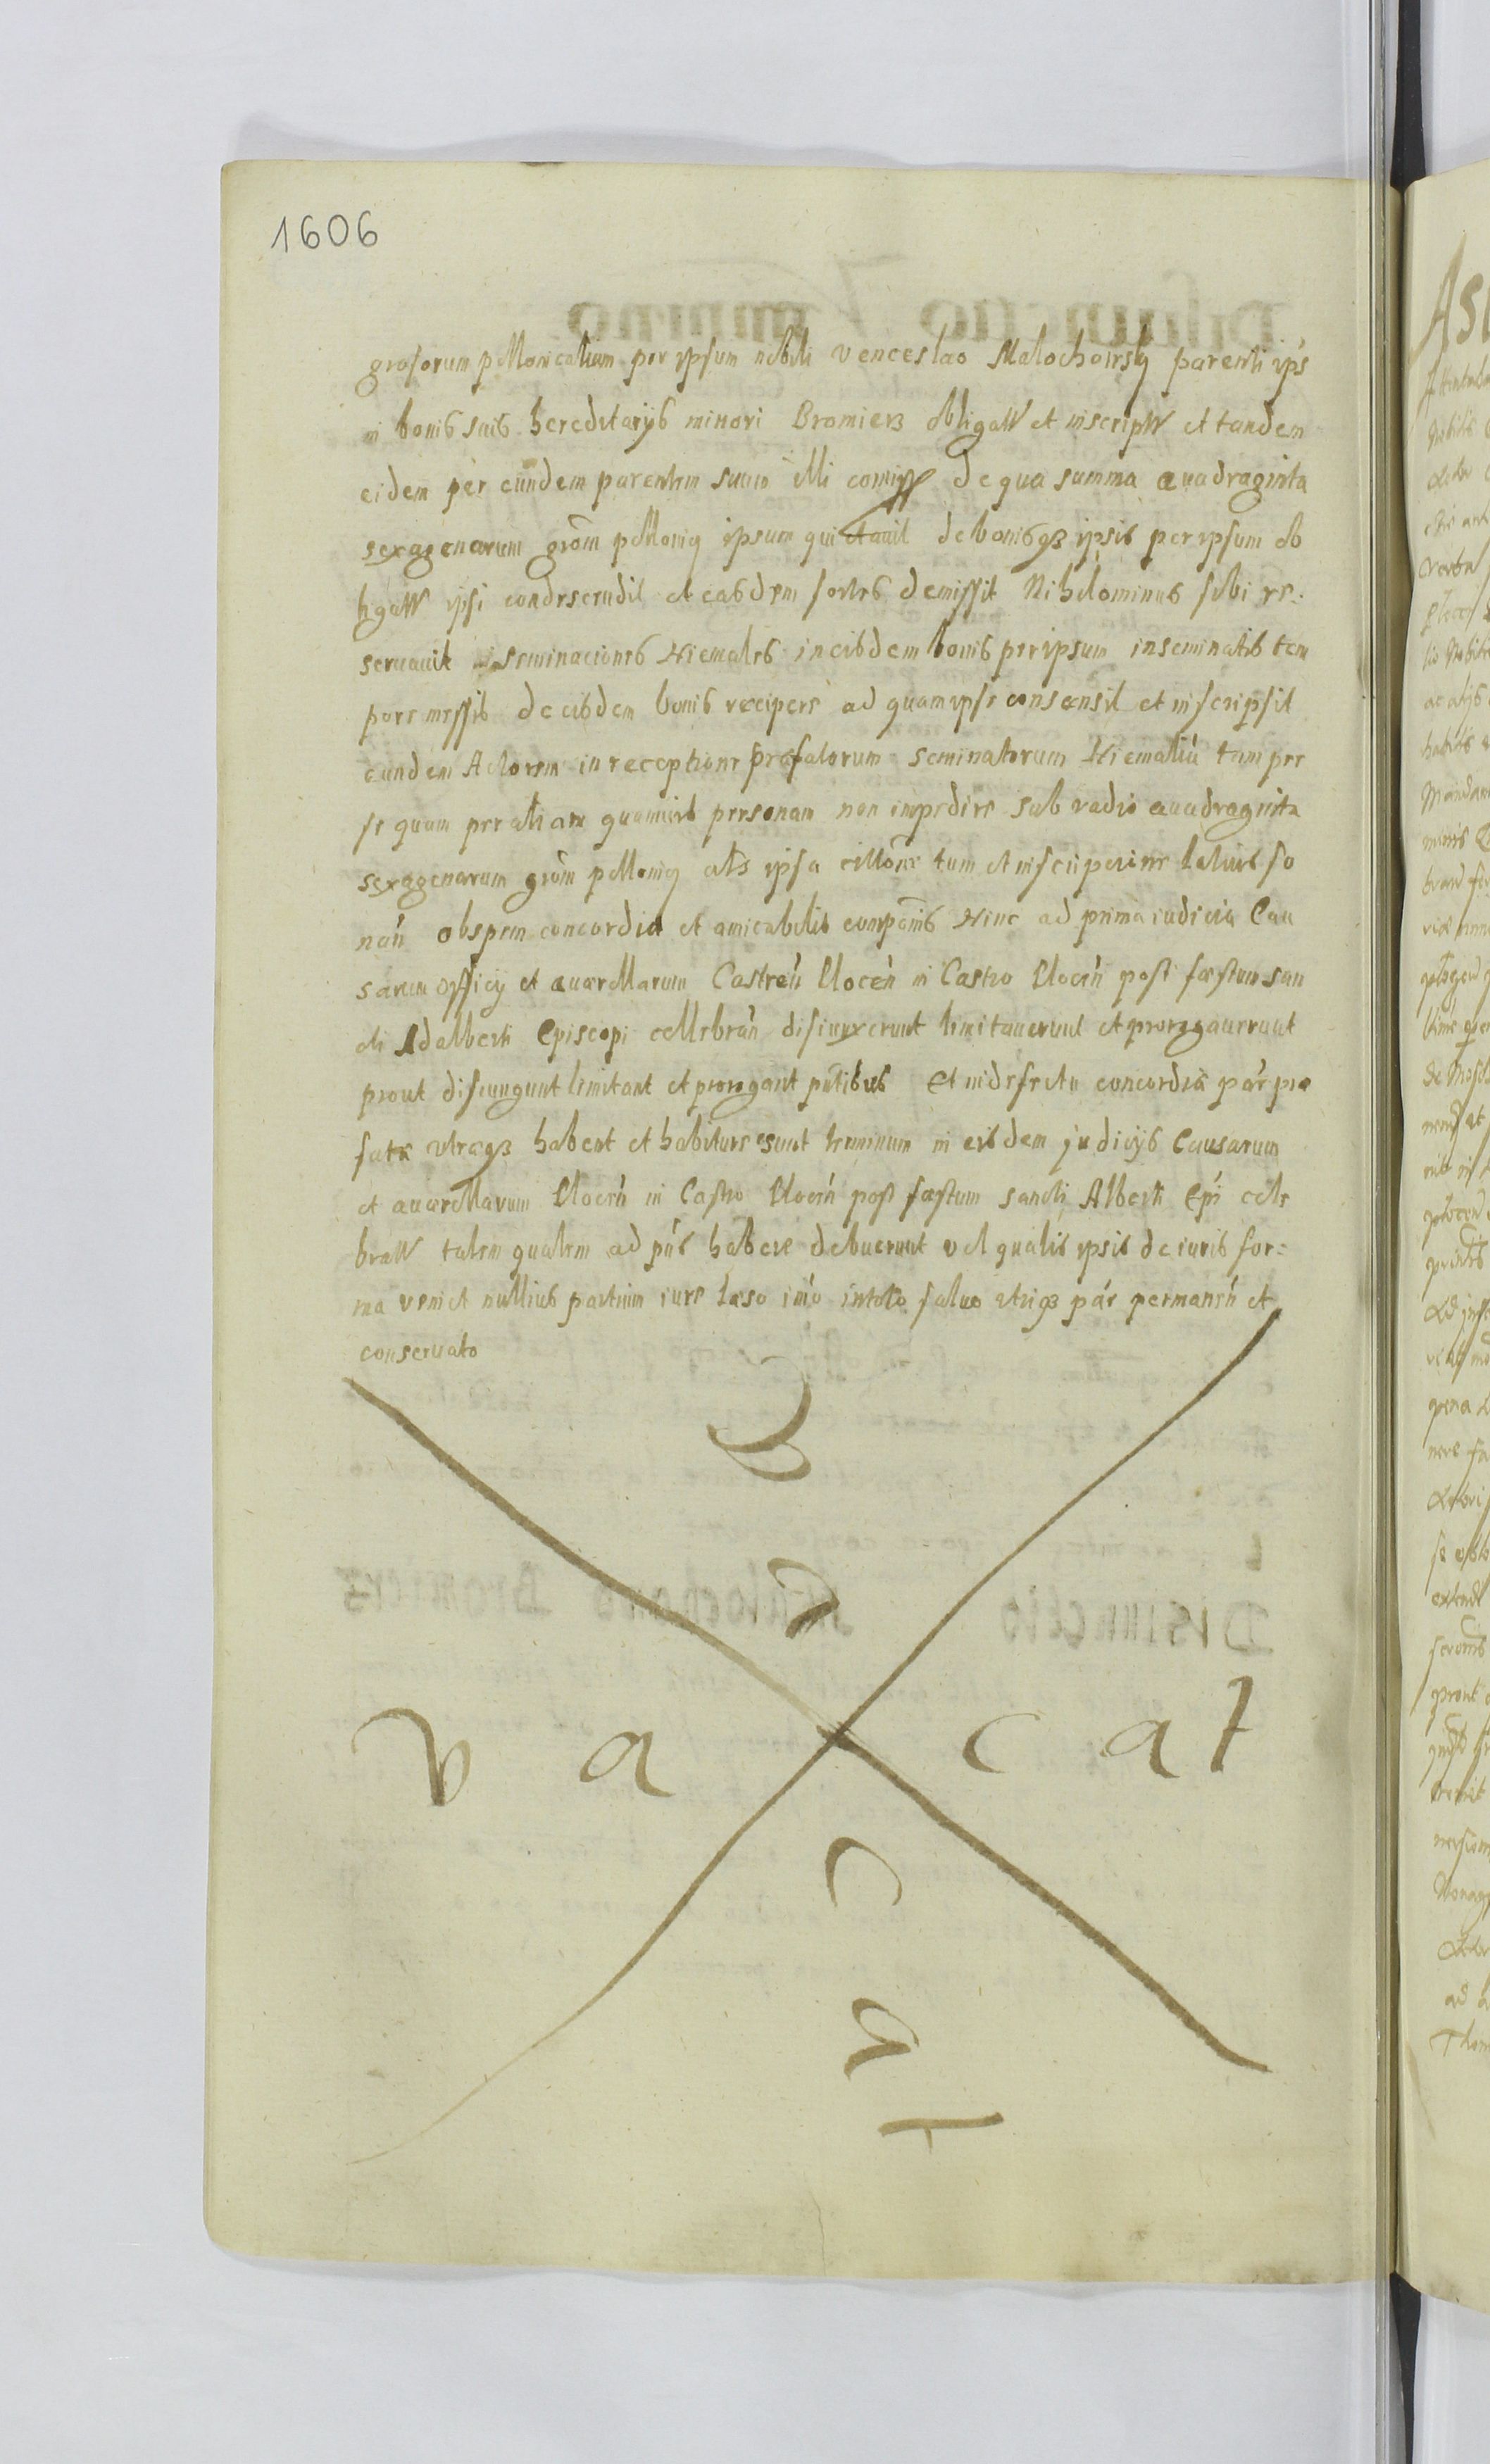 1606
grosorum pollonicalium per ipsum nobili Venceslao Malochowsky parenti ips
in bonis suis hereditarijs minori Bromierz obligatt et inscriptt et tandem
eidem per eundem parentem suum illi comiss de qua summa quadraginta
sexagenarum grom pollonig ipsum quietauit de bonisqz ipsis per ipsum ob
ligatt ipsi condescendit et easdem sortes demissit Nihilominus sibi re:
seruauit inseminaciones Hiemales in eisdem bonis per ipsum inseminatis tem
pore messis de eisdem bonis recipere ad quam ipse consensit et inscripsit
eundem Actorem in receptione præfatorum seminatorum Hiemaliu tam per
se quam per aliam quamuis personam non impedire sub vadio quadraginta
sexagenarum grom pollonig als ipsa tum et inscripcione latius so
nan ob spem concordiæ et amicabilis componis Hinc ad prima iudicia Cau
sarum officij et quærellarum Castren Plocen in Castro Plocen post fæstum san
cti Adalberti Episcopi cellebran disiunxerunt limitauerunt et prorogauerunt
prout disiungunt limitant et prorogant pntibus Et in defectu concordiæ par præ
fatæ vtræqz habent et habituræ sunt terminum in eisdem judicijs Causarum
et quærellarum Plocen in Castro Plocen post fæstum sancti Alberti Epi cele
bratt talem qualem ad pns habere debuerunt vel qualis ipsis de iuris for:
ma veniet nullius partium iure læso imo in toto saluo vtriqz par permanen et
conseruato
Vacat
Vacat